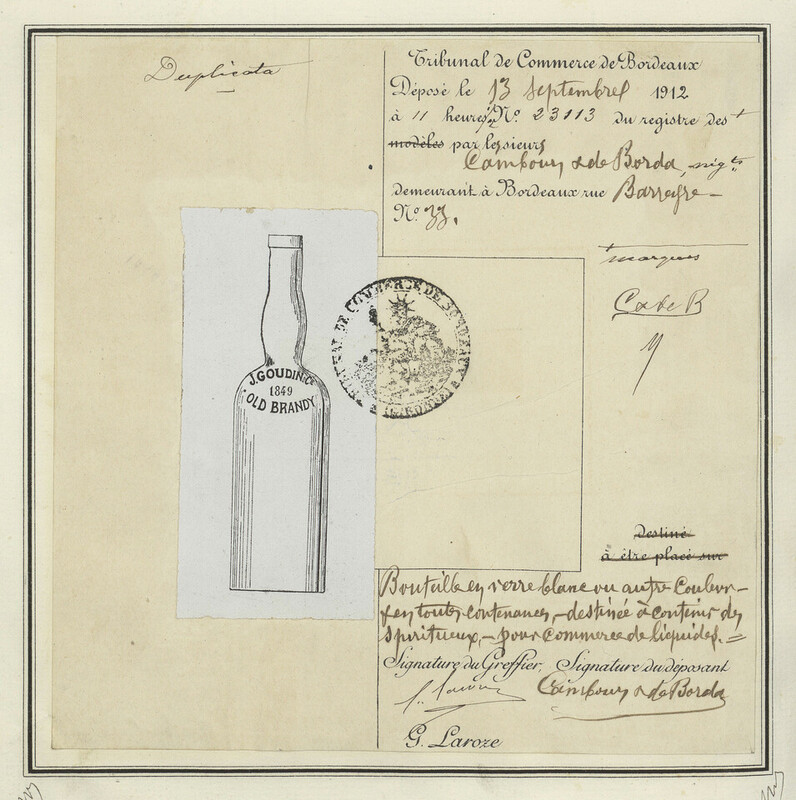 Duplicata
Tribunal de Commerce de Bordeaux
Déposé le 13 Septembre 1912
à 11 heures Nº 23113 du registre des +
modèles par les sieurs
Cambours & de Borda, nég.ts
demeurant à Bordeaux rue Barreyre
Nº 33.
+ marques
C & de B
J. GOUDIN & Cº
1849
OLD BRANDY
TRIBUNAL DE COMMERCE DE BORDEAUX
(GIRONDE)
destiné
à être placé sur
Bouteille en verre blanc ou autre couleur
& en toutes contenances, destinée à contenir des
spiritueux, pour commerce de liquides. =
Signature du Greffier, Signature du déposant
Cambours & de Borda
G. Laroze